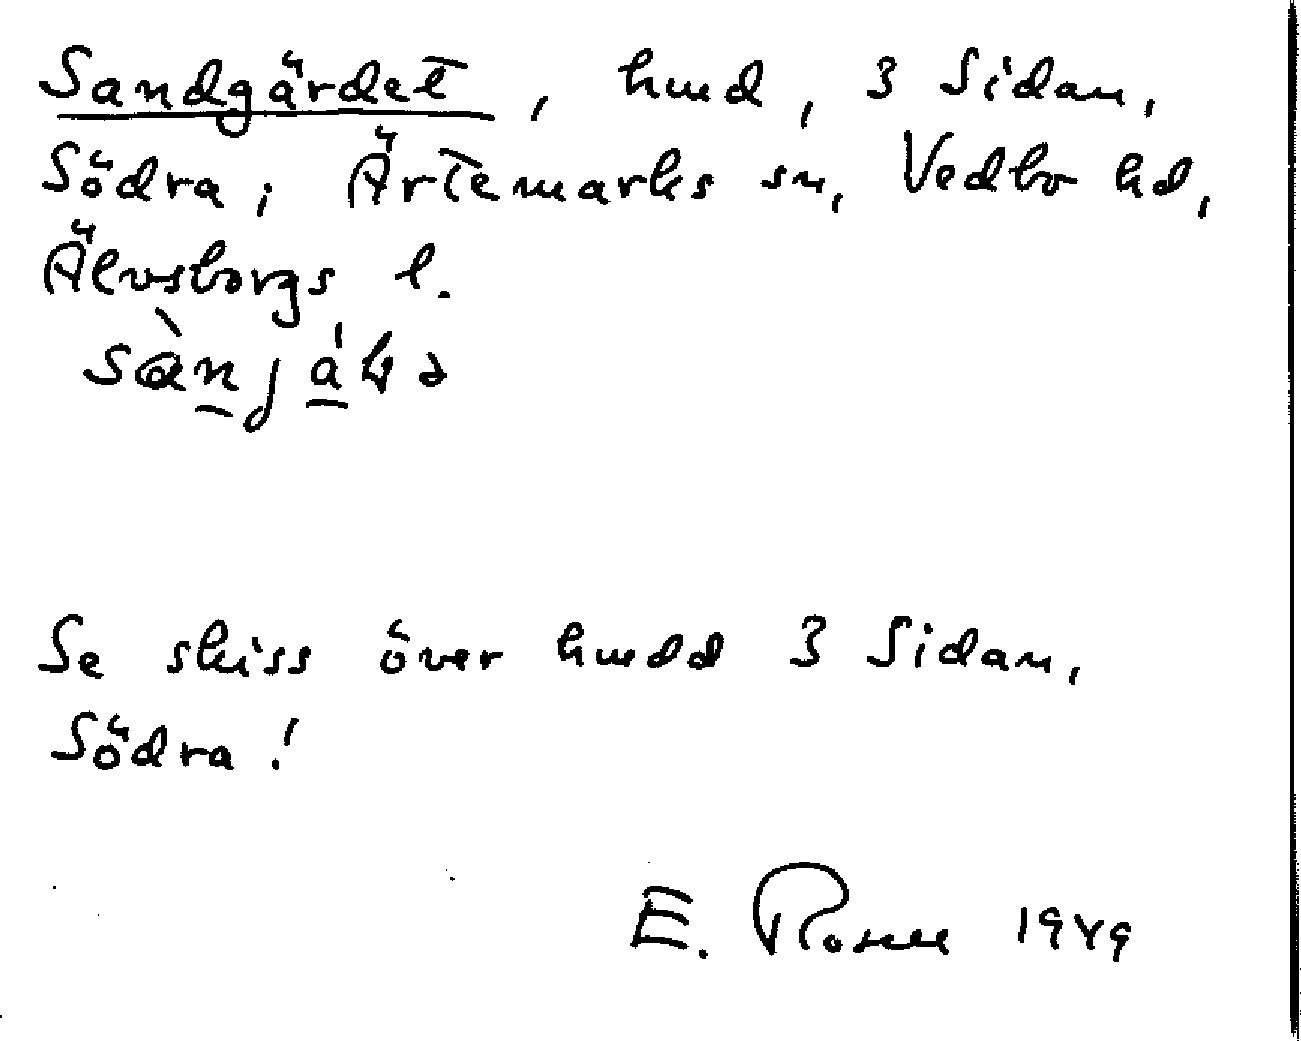 Sandgärdet, hmd, 3 Sidan,
Södra, Ärtemarks sn, Vedbo hd,
Älvsborgs l.
Se skiss över hmdd 3 Sidan,
Södra!
E. Rosen 1949